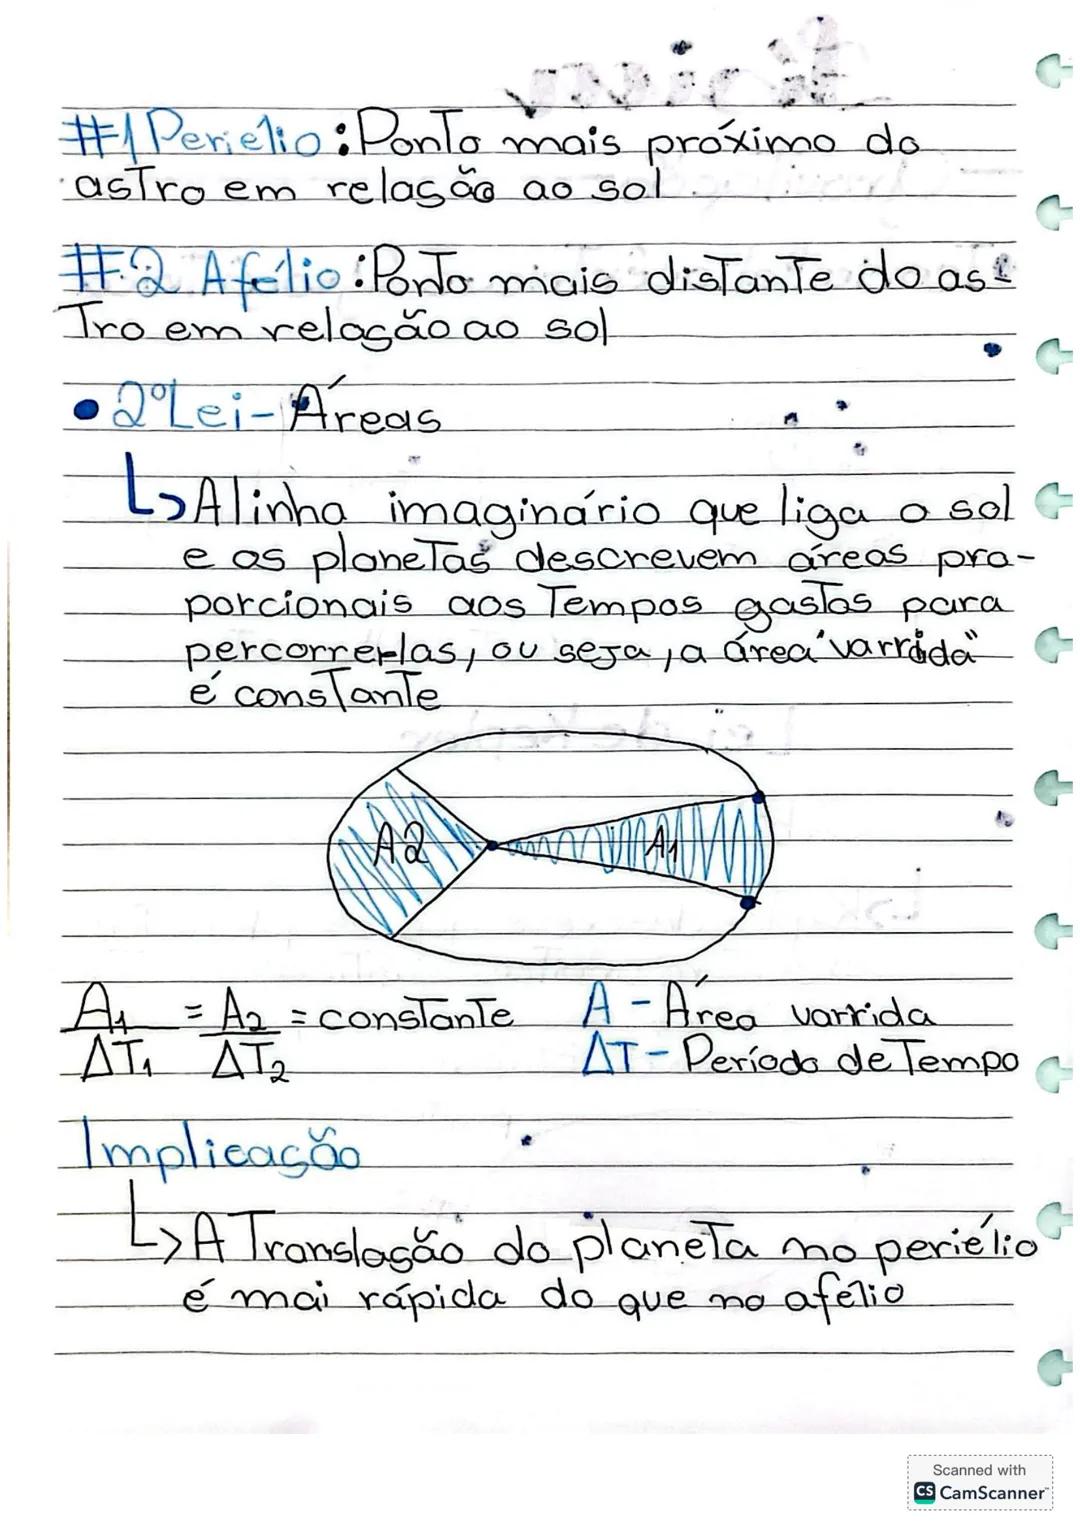 #1 Periélio: Ponto mais próximo do
astro em relação ao sol
#2 Afélio: Ponto mais distante do as-
tro em relação ao sol
• 2º Lei - Áreas
↳ A linha imaginário que liga o sol
e os planetas descrevem áreas pro-
porcionais aos tempos gastos para
percorrer-las, ou seja, a área "varrida"
é constante
A2
A1
A1 = A2 = constante
ΔT1 ΔT2
A - Área varrida
ΔT - Período de Tempo
Implicação
↳ A Translação do planeta no periélio
é mai rápida do que no afélio
Scanned with
CS CamScanner